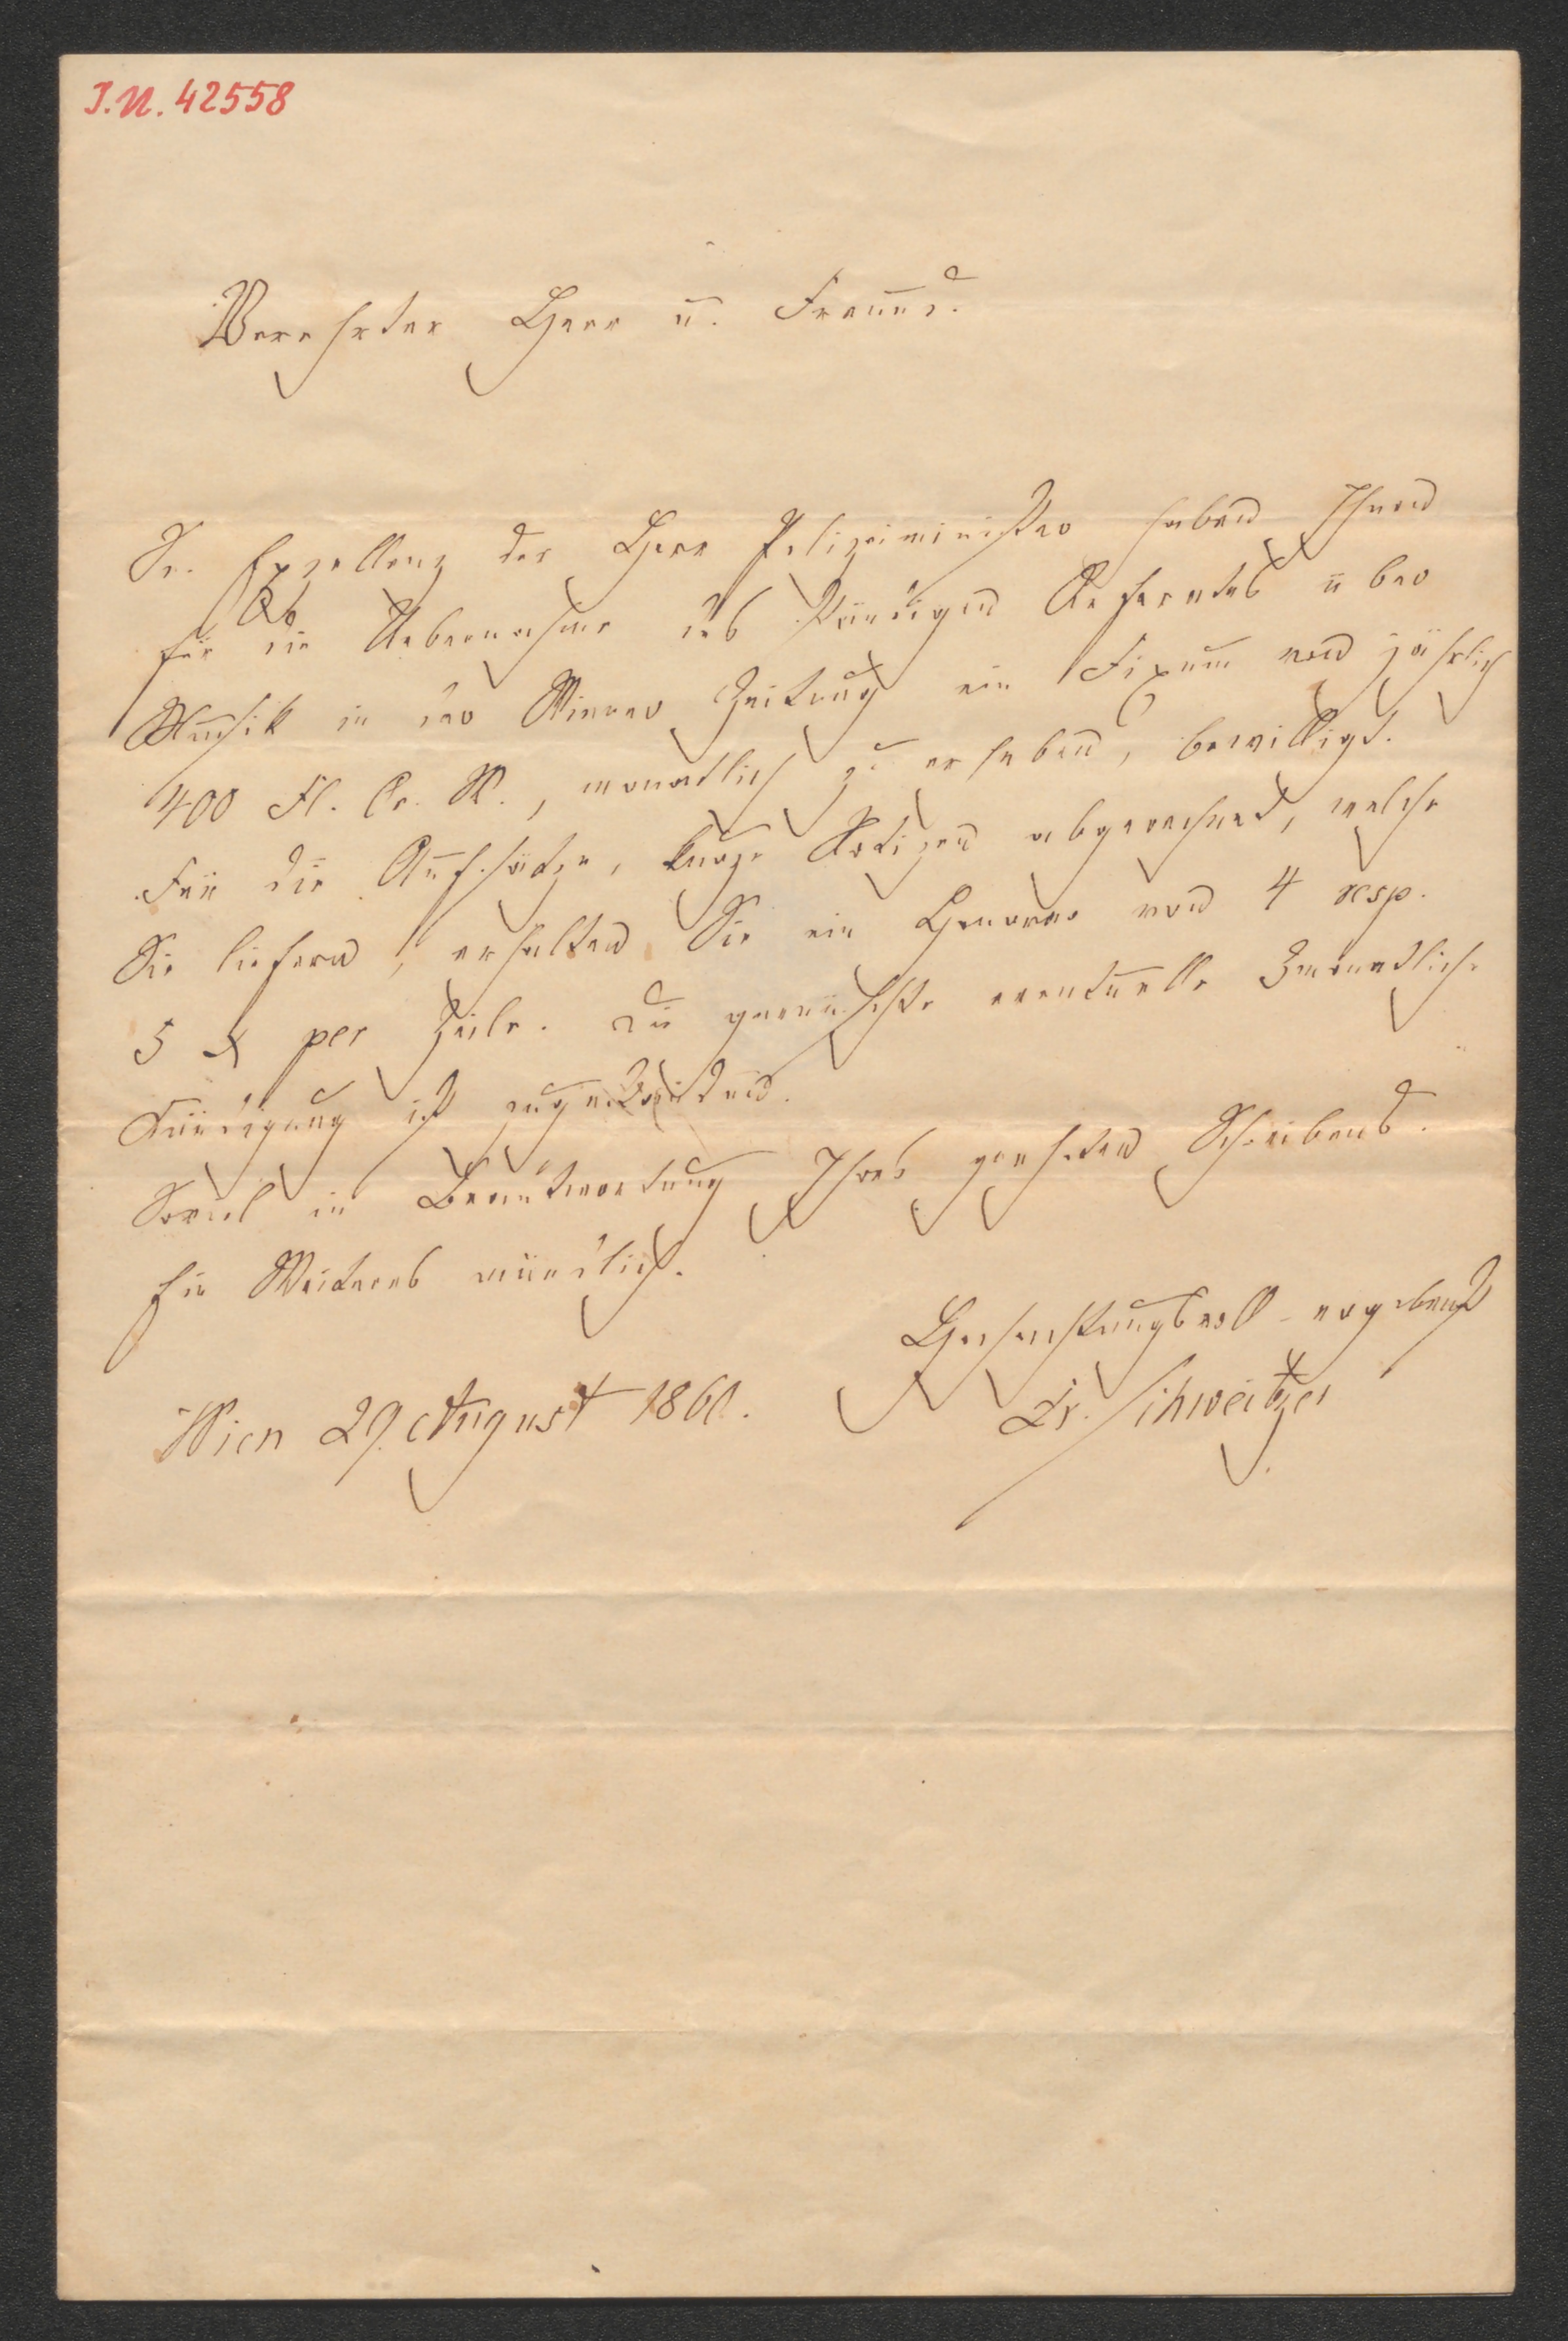 I.N. 42558
Verehrter Herr u. Freund.
Se. Exzellenz der Herr Polizeiminister haben Ihnen
für die Uebernahme des ständigen Referates über
Musik in der Wiener Zeitung ein Fixum von jährlich
400 Fl. Oe. W., monatlich zu erheben, bewilligt.
Für die Aufsätze, kurze Notizen abgerechnet, welche
Sie liefern, erhalten Sie ein Honorar von 4 resp.
5 x per Zeile. Die gewünschte eventuelle 3monatliche
Kündigung ist zugestanden.
Soviel in Beantwortung Ihres geehrten Schreibens.
Ein Weiteres mündlich.
Hochachtungsvoll ergebenst
Dr. Schweitzer
Wien 29. August 1860.